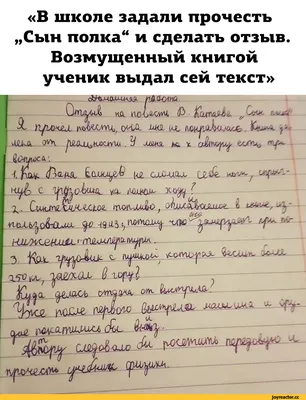 «В школе задали прочесть
„Сын полка“ и сделать отзыв.
Возмущенный книгой
ученик выдал сей текст»
Домашняя работа
Отзыв на повесть В. Катаева „Сын полка"
Я прочел повесть, она мне не понравилась. Книга да-
лека от реальности. У меня на к автору есть три
вопроса:
1. Как Ваня Солнцев не сломал себе ноги, спрыг-
нув с грузовика на полном ходу?
2. Синтетическое топливо, описываемое в книге, ис-
пользовали до 1943, потому что оно замерзает при по-
нижении температуры.
3. Как грузовик с пушкой, которая весит более
250 кг, заехал в гору?
Куда делась отдача от выстрела?
Уже после первого выстрела машина и ору-
дие покатились бы вниз.
Автору следовало бы посетить передовую и
прочесть учебник физики.
joyreactor.cc